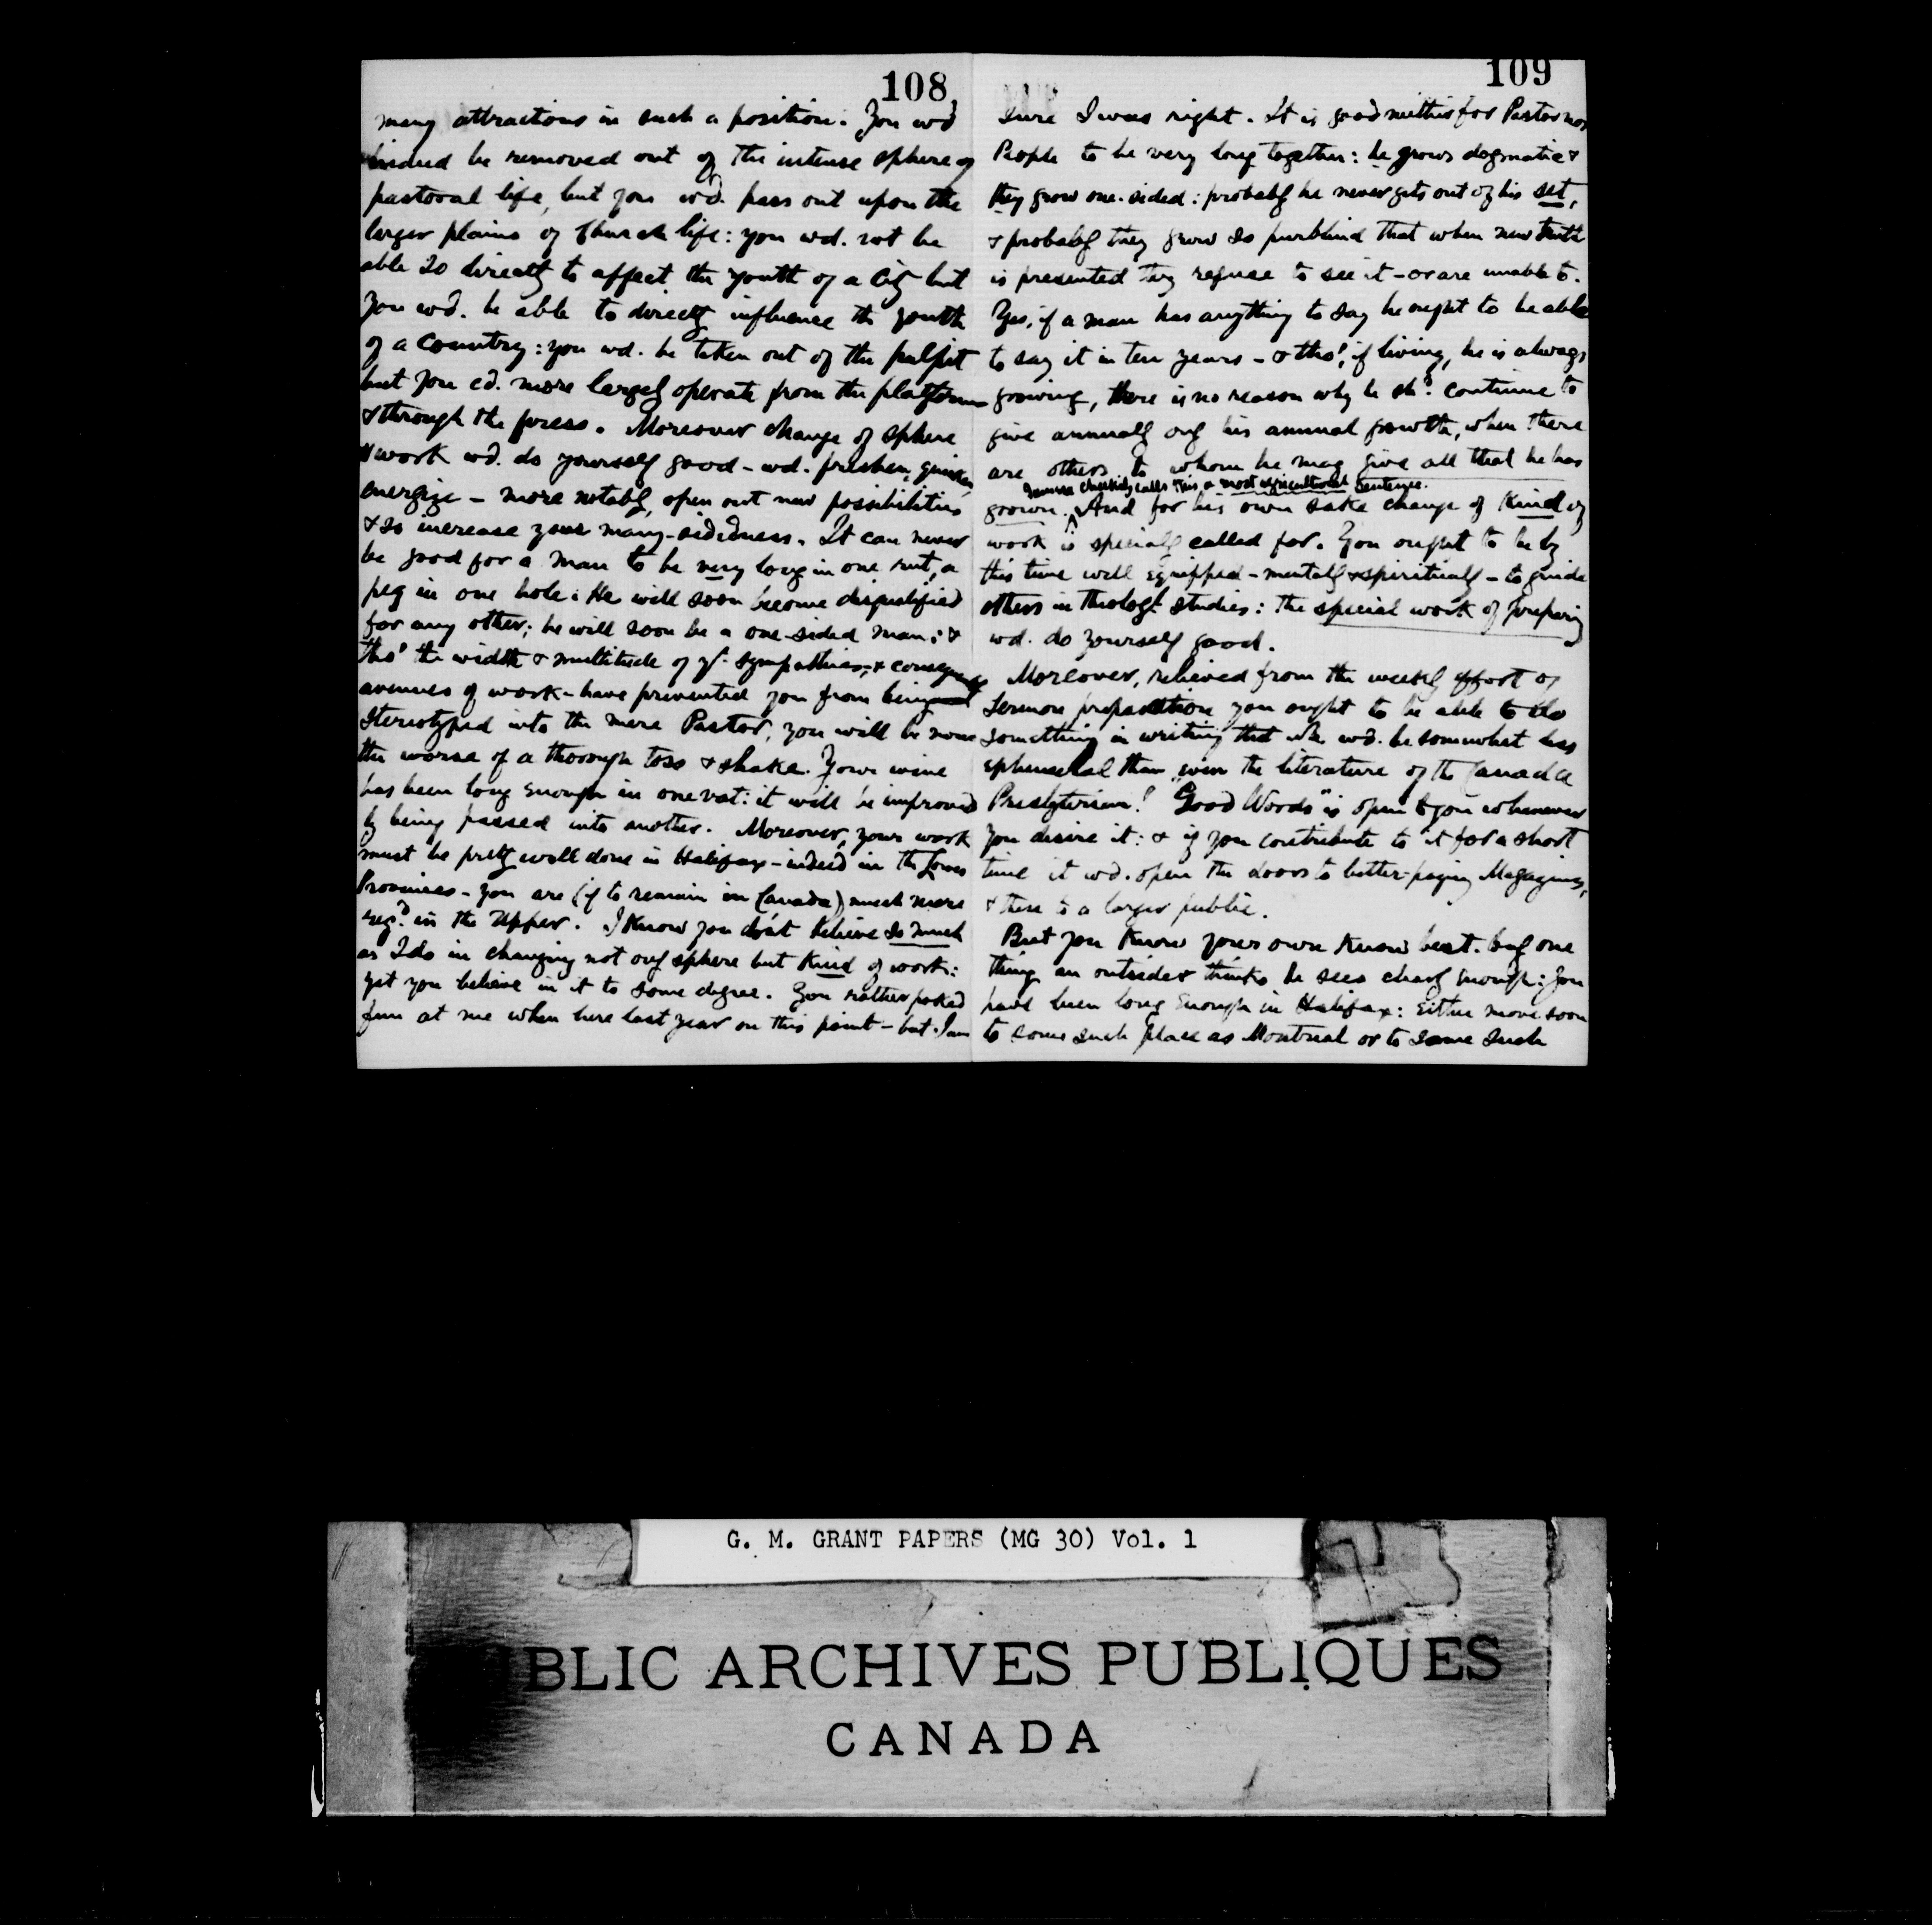 108
many attractions in such a position. You wd
indeed be removed out of the intense sphere of
pastoral life, but you wd. pass out upon the
larger plains of Church life: you wd. not be
able so directly to affect the youth of a City but
you wd. be able to directly influence the youth
of a Country: you wd. be taken out of the pulpit
but you cd. more largely operate from the platform
& through the press. Moreover change of sphere
& work wd. do yourself good - wd. freshen, quicken,
energize - more notably, open out new possibilities
& so increase your many-sidedness. It can never
be good for a man to be very long in one rut, a
peg in one hole. He will soon become disqualified
for any other; he will soon be a one-sided man: &
tho' the width & multitude of yr. sympathies, & consequent
avenues of work - have prevented you from being
stereotyped into the mere Pastor, you will be none
the worse of a thorough toss & shake. Your wine
has been long enough in one vat: it will be improved
by being passed into another. Moreover, your work
must be pretty well done in Halifax - indeed in the Lower
Provinces - you are (if to remain in Canada) much more
reqd. in the Upper. I know you don't believe so much
as I do in changing not only sphere but kind of work:
yet you believe in it to some degree. You rather poked
fun at me when here last year on this point - but I am
109
sure I was right. It is good neither for Pastor nor
People to be very long together: he grows dogmatic &
they grow one-sided: probably he never gets out of his set,
& probably they grow so purblind that when new truth
is presented they refuse to see it - or are unable to.
Yes, if a man has anything to say he ought to be able
to say it in ten years - & tho', if living, he is always
growing, there is no reason why he shd. continue to
give annually only his annual growth, when there
are others to whom he may give all that he has
calls this a most agricultural sentence.
grown. And for his own sake change of kind of
work is specially called for. You ought to be by
this time well equipped - mentally & spiritually - to guide
others in theologl. studies: the special work of preparing
wd. do yourself good.
Moreover, relieved from the weekly effort of
sermon preparation you ought to be able to do
something in writing that wh. wd. be somewhat less
ephemeral than even the literature of the Canada
Presbyterian! "Good Words" is open to you whenever
you desire it: & if you contribute to it for a short
time it wd. open the doors to better-paying Magazines,
& there to a larger public.
But you know your own know best. Only one
thing an outsider thinks he sees clearly enough: You
have been long enough in Halifax: Either move soon
to some such place as Montreal or to some such
G. M. GRANT PAPERS (MG 30) Vol. 1
BLIC ARCHIVES PUBLIQUES
CANADA